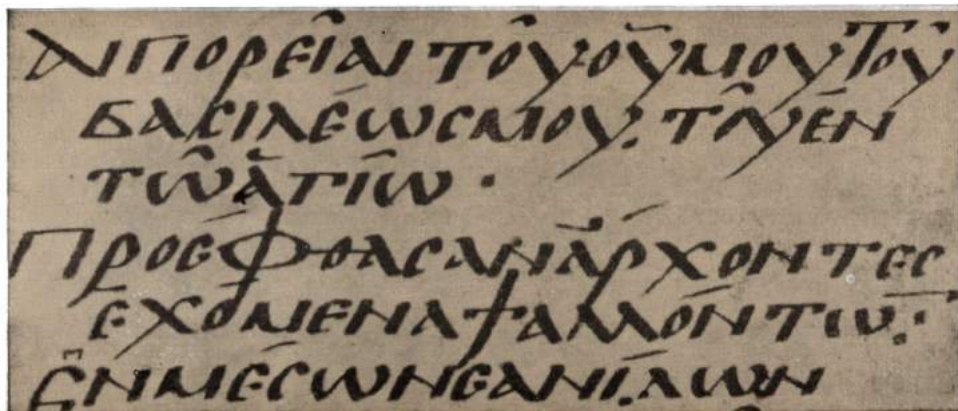 ΑΙ ΠΟΡΕΙ͂ΑΙ ΤΟΥ͂ ΘΥ̅ ΜΟΥ ΤΟΥ͂
ΒΑϹΙΛΈΩϹ ΜΟΥ· ΤΟΥ͂ ἘΝ
ΤΩ͂ ἉΓΊΩ·
ΠΡΟΈΦΘΑϹΑΝ ἌΡΧΟΝΤΕϹ
ἘΧΌΜΕΝΑ ΨΑΛΛΌΝΤΩ̅:
ἘΝ ΜΈϹΩ ΝΕΑΝΊΔΩΝ